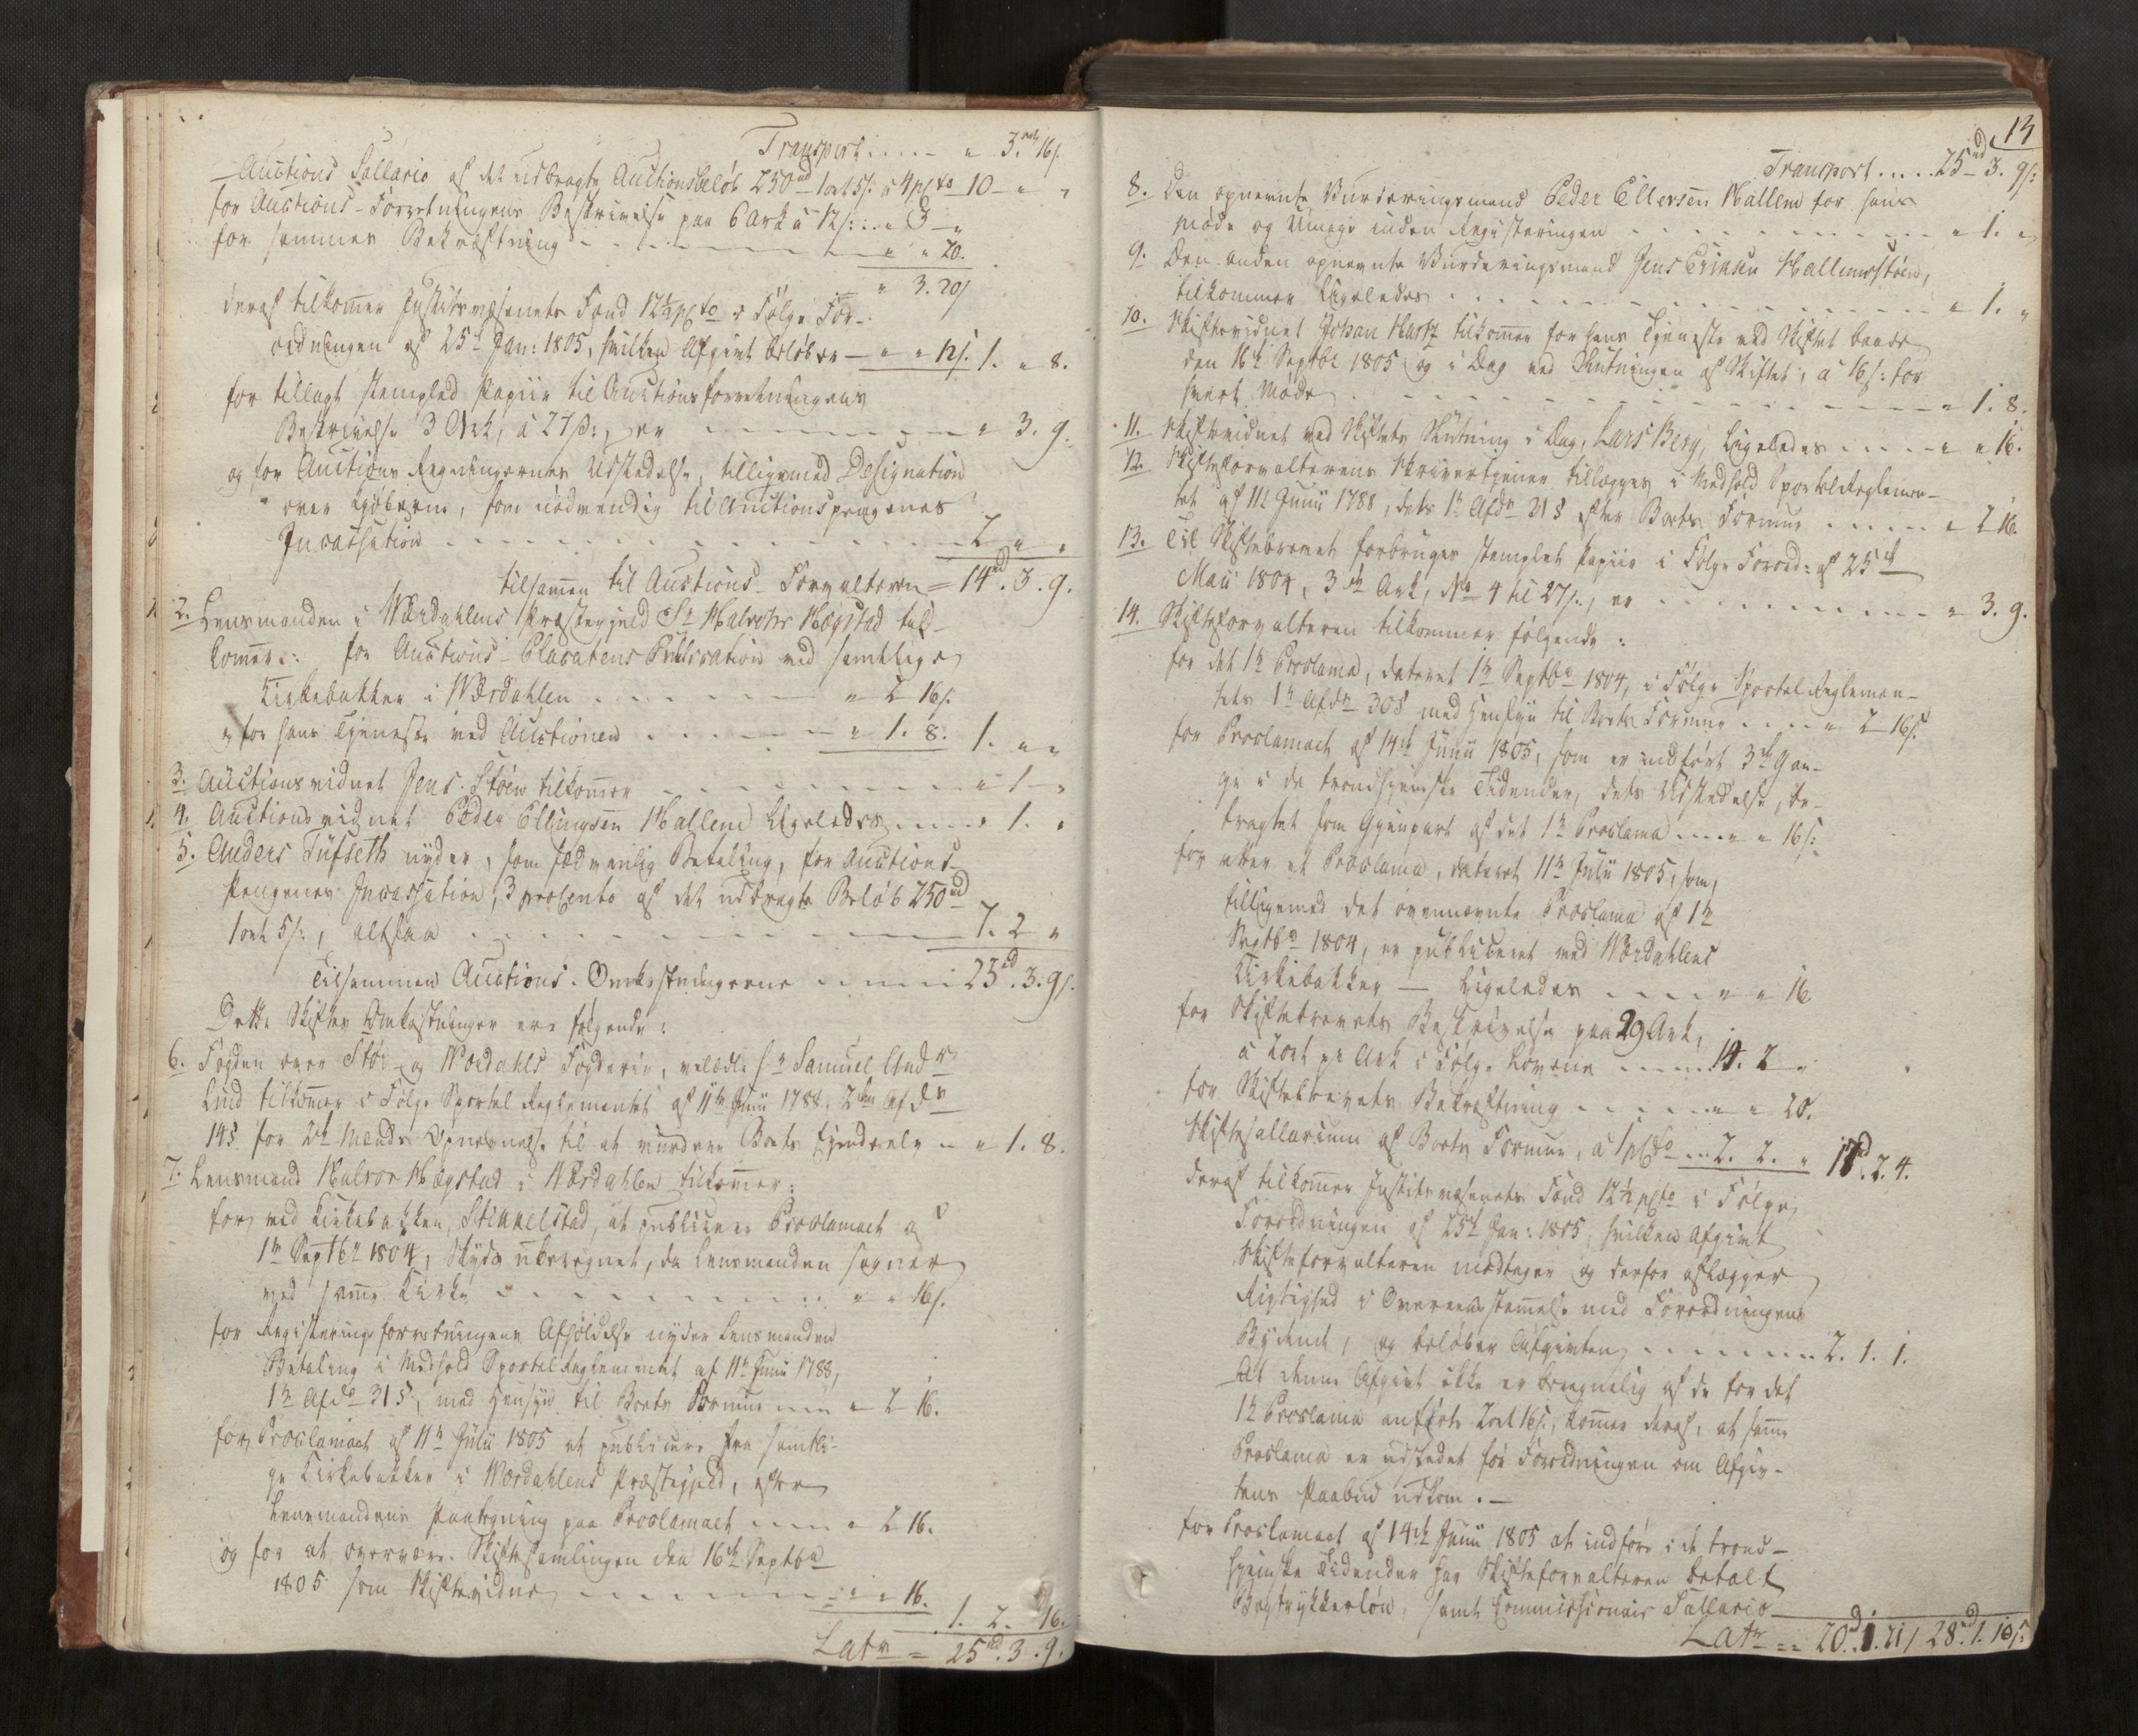 Transport ..... " 3. ort 16 s.
Auctions Sallario af det udbragte Auctionsbeløb 250 rd 1 ort 5 s. à 4 pCto 10 " "
for Auctions-Forretningens Beskrivelse paa 6 Ark à 12 s: .. " 3 "
for sammes Bekræftning - - - - " " 20.
" 3. 20 s
deraf tilkommer Justitsvæsenets Fond 12½ pCto i Følge For-
ordningen af 25de Jan: 1805, hvilken Afgivt beløber — " " 12 s. 1. " 8.
for tillagt stemplet Papiir til Auctionsforretningens
Beskrivelse 3 Ark, à 27 s:, er - - - - " 3. 9.
og for Auctions Regningernes Udstedelse, tilligemed Designation
over Kjøberne, som nødvendig til Auctionspengenes
Incassation - - - - 2 " "
tilsammen til Auctions-Forvalteren = 14 rd. 3. 9.
2. Lensmanden i Værdahlens Præstegjeld Sr Halvohr Hægstad til-
kommer: for Auctions-Placatens Publication ved samtlige
Kirkebakker i Værdahlen - - - - " 2 16 s.
og for hans Tjeneste ved Auctionen - - - - " 1. 8. 1. " "
3. Auctionsvidnet Jens Støen tilkommer - - - - " 1 "
4. Auctionsvidnet Peder Ellingsen Hallem Ligeledes - - - " 1. "
5. Anders Tüfseth nyder, som sædvanlig Betaling, for Auctions-
Pengenes Incassation, 3 procento af det udbragte Beløb 250 rd
1 ort 5 s:, altsaa - - - - 7. 2 "
Tilsammen Auctions-Omkostningerne - - - - 23 rd. 3. 9 s.
Dette Skiftes Omkostninger ere følgende:
6. Fogden over Stør- og Værdahls Fogderie, velædle Hr Samuel And
Lind tilkommer i Følge Sportel Reglementet af 11te Junii 1788, 2den Afdn
14 § for 2de Mænds Opnævnelse til at vurdere Boets Ejendeele - " 1. 8.
7. Lensmand Halvor Hægstad i Værdahlen tilkommer:
for ved Kirkebakken, Stikkelstad, at publicere Proclamaet af
1te Septbr 1804, Skyds uberegnet, da Lensmanden sogner
ved samme Kirke - - - - " " 16 s.
for Registeringsforretningens Afholdelse nyder Lensmanden
Betaling i Medhold Sportel Reglementet af 11te Junii 1788,
1te Afdn 31 §, med Hensyn til Boets Formue - - - " 2 16.
for Proclamaet af 11te Julii 1805 at publicere fra samtli-
ge Kirkebakker i Værdahlens Præstegjeld, efter
Lensmandens Paategning paa Proclamaet - - - " 2 16.
og for at overvære Skiftesamlingen den 16de Septbr
1805 som Skiftevidne - - - - " " 16.
1. 2. 16.
Latr = 25 rd. 3. 9.
13
Transport ..... 25 rd 3. 9 s:
8. Den opnevnte Vurderingsmand Peder Ellersen Hallem for hans
Møde og Umage under Registeringen - - - - " 1. "
9. Den anden opnævnte Vurderingsmand Jens Eriksen Hallemsstøen,
tilkommer Ligeledes - - - - " 1. "
10. Skiftevidnet Johan Hartz tilkommer for hans Tjeneste ved Skiftet baade
den 16de Septbr 1805 og i Dag ved Slutningen af Skiftet, à 16 s: for
hvert Møde - - - - " 1. 8.
11. Skiftevidnet ved Skiftets Slutning i Dag, Lars Berg, Ligeledes - - - - " " 16.
12. Skifteforvalterens Skriverkjener tillægges i Medhold Sportel Reglemen-
tet af 11te Junii 1788, dets 1te Afdn 31 § efter Boets Formue - - - - " 2 16.
13. Til Skiftebrevet forbruges stemplet Papiir i Følge Forord: af 25de
Maii 1804, 3de Ark, No 4 til 27 s:, er - - - - " 3. 9.
14. Skifteforvalteren tilkommer følgende:
for det 1te Proclama, dateret 1te Septbr 1804, i Følge Sportel Reglemen-
tets 1te Afdn 30 § med Hensyn til Boets Formue - - - " 2 16 s.
for Proclamaet af 14de Junii 1805, som er indført 3de Gan-
ge i de trondhjemske Tidender, dets Udstedelse, be-
tragtet som Gjenpart af det 1te Proclama - - - " " 16 s:
for atter et Proclama, dateret 11te Julii 1805, som,
tilligemed det ovennævnte Proclama af 1te
Septbr 1804, er publiceret ved Værdahlens
Kirkebakker — Ligeledes - - - " " 16
for Skiftebrevets Beskrivelse paa 29 Ark,
à 2 ort pr Ark i Følge Loven - - - 14. 2 "
for Skiftebrevets Bekræftning - - - " " 20.
Skiftesallarium af Boets Formue, à 1 pCto - - 2. 2. " 18 rd. 2. 4.
deraf tilkommer Justitsvæsenets Fond 12½ pCto i Følge
Forordningen af 25de Jan: 1805, hvilken Afgivt
Skifteforvalteren modtager og derfor aflægger
Rigtighed i Overeensstemmelse med Forordningens
Bydende, og beløber Afgivten - - - - 2. 1. 1.
At denne Afgivt ikke er beregnelig af de for det
1te Proclama anførte 2 ort 16 s., kommer deraf, at samme
Proclama er udstedet før Forordningen om Afgiv-
tens Paabud udkom. —
for Proclamaet af 14de Junii 1805 at indføre i de trond-
hjemske Tidender har Skifteforvalteren betalt
Bogtrykkerløn, samt Commissionair Sallario
Latr = 20 rd. 1. 21 s 28 rd. 1. 10 s: